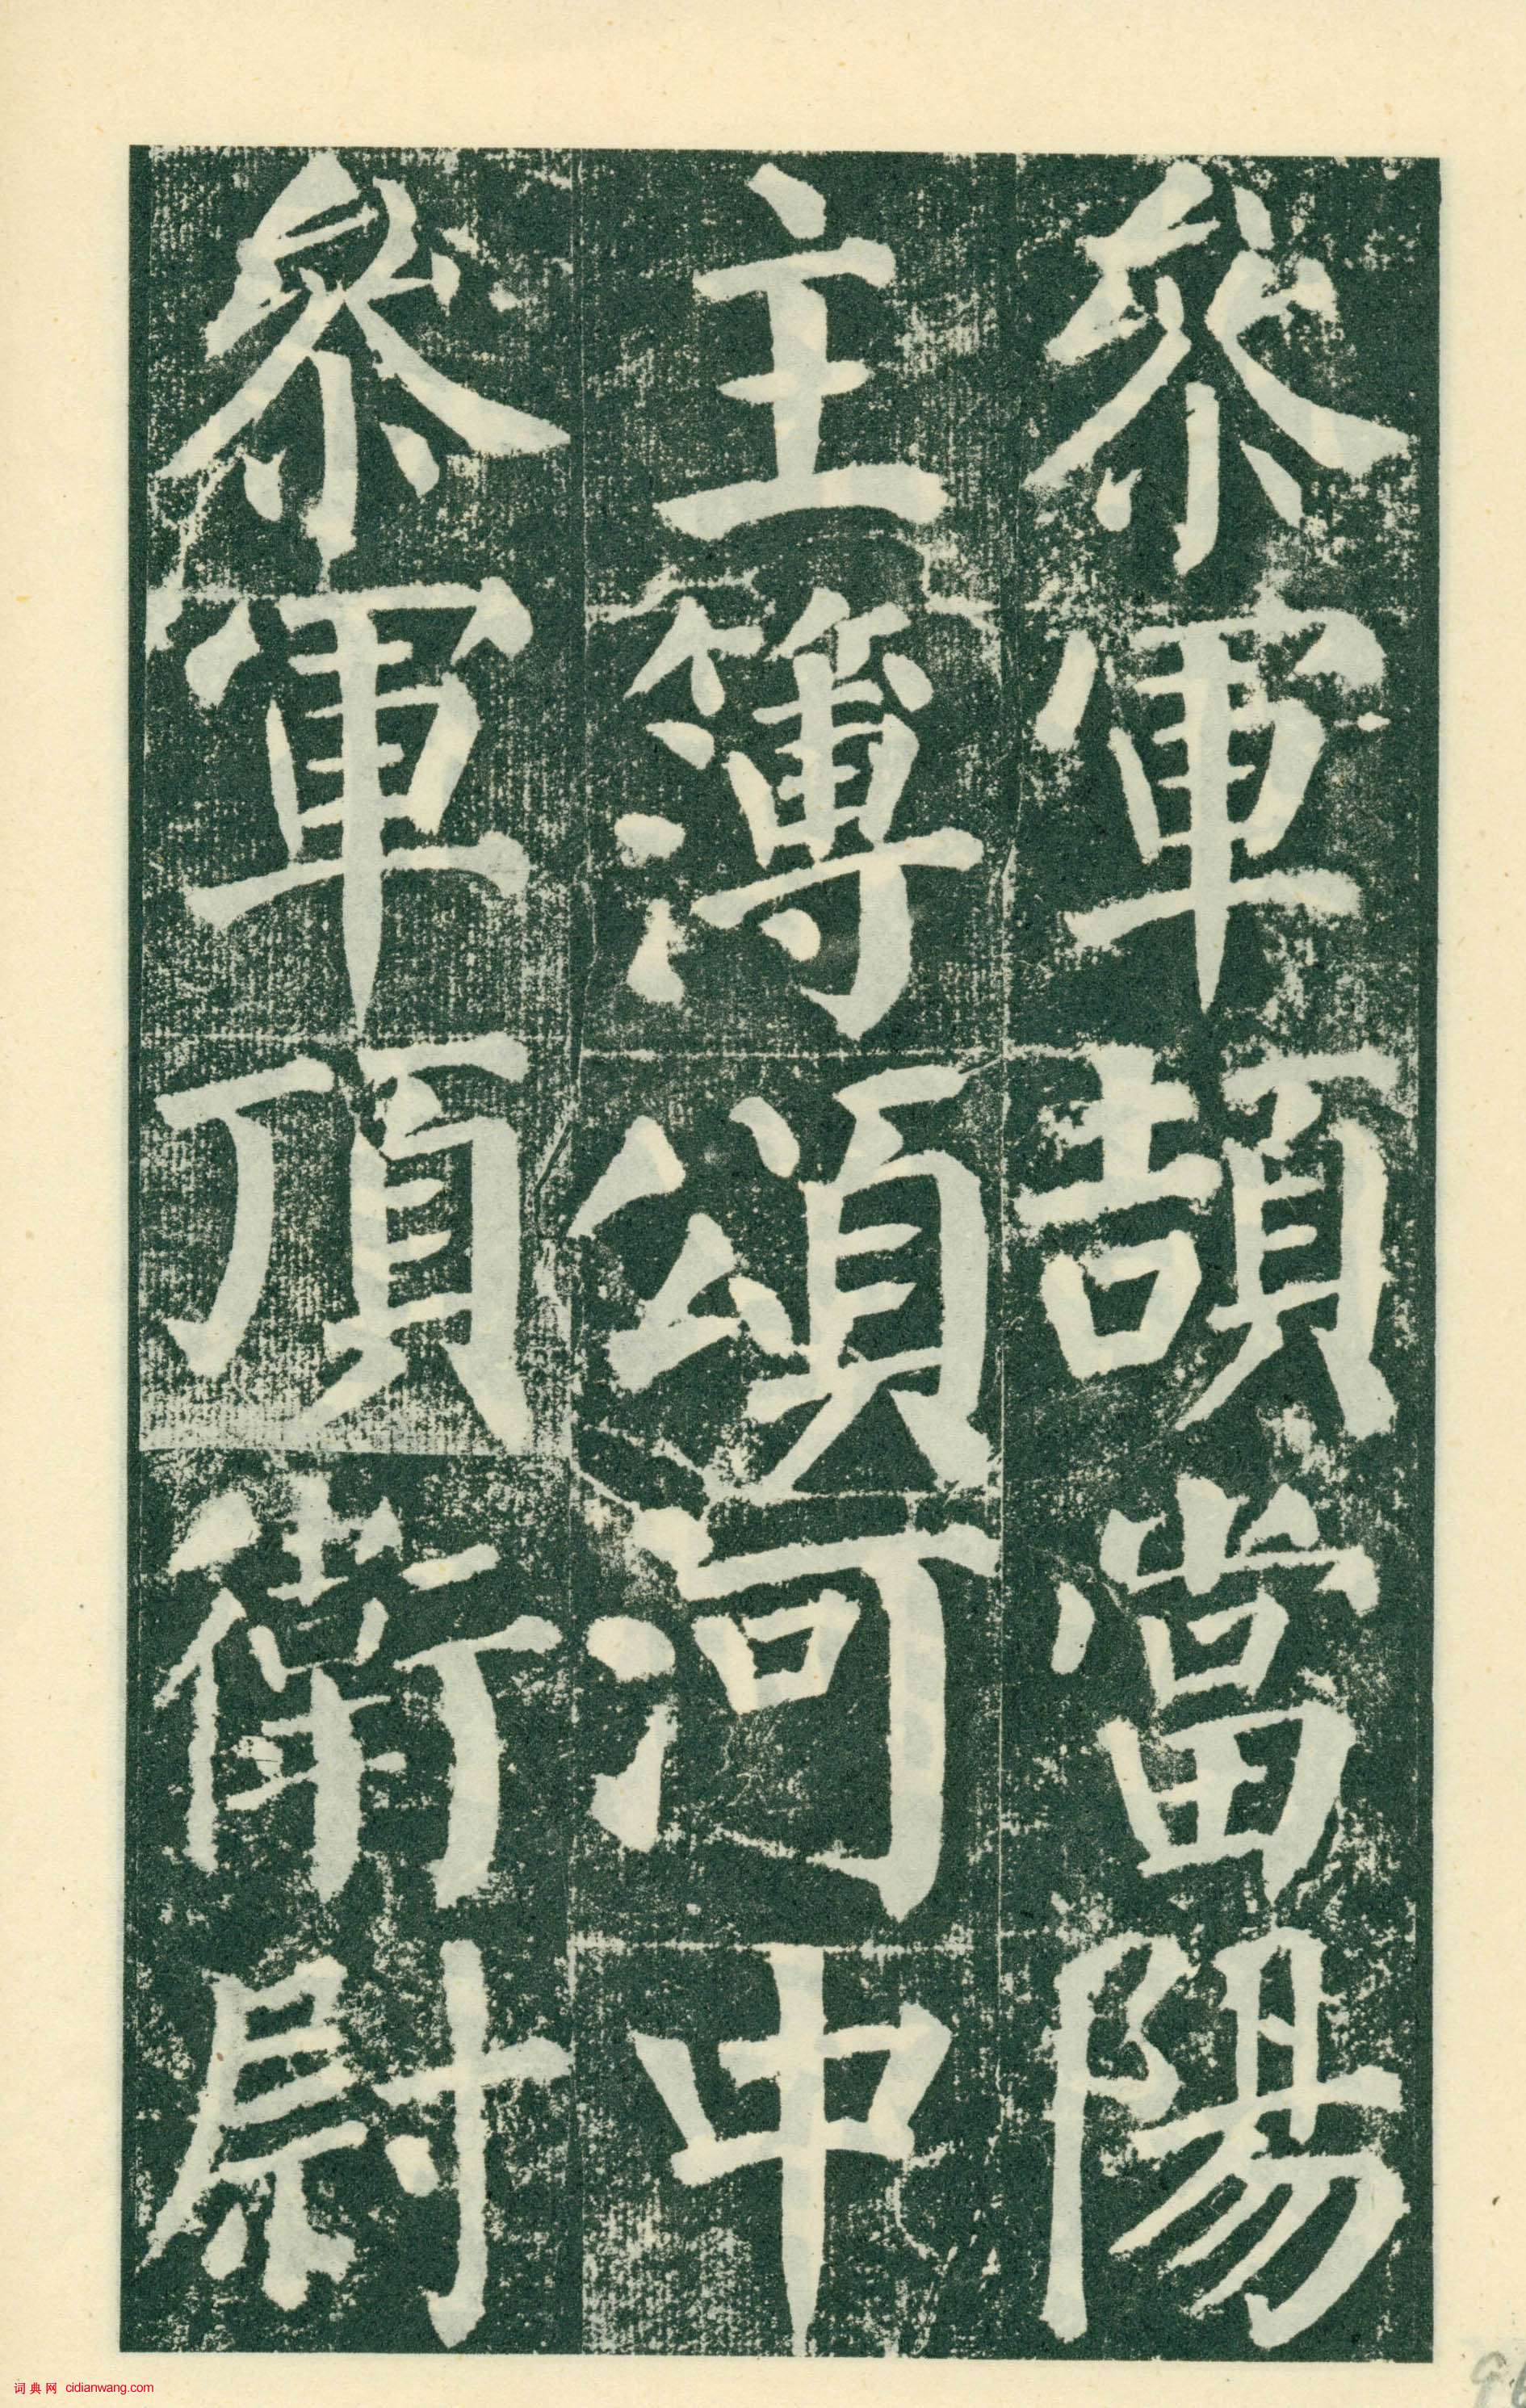 參軍頡當陽
主簿頌河中
參軍頂衛尉
词典网 cidianwang.com